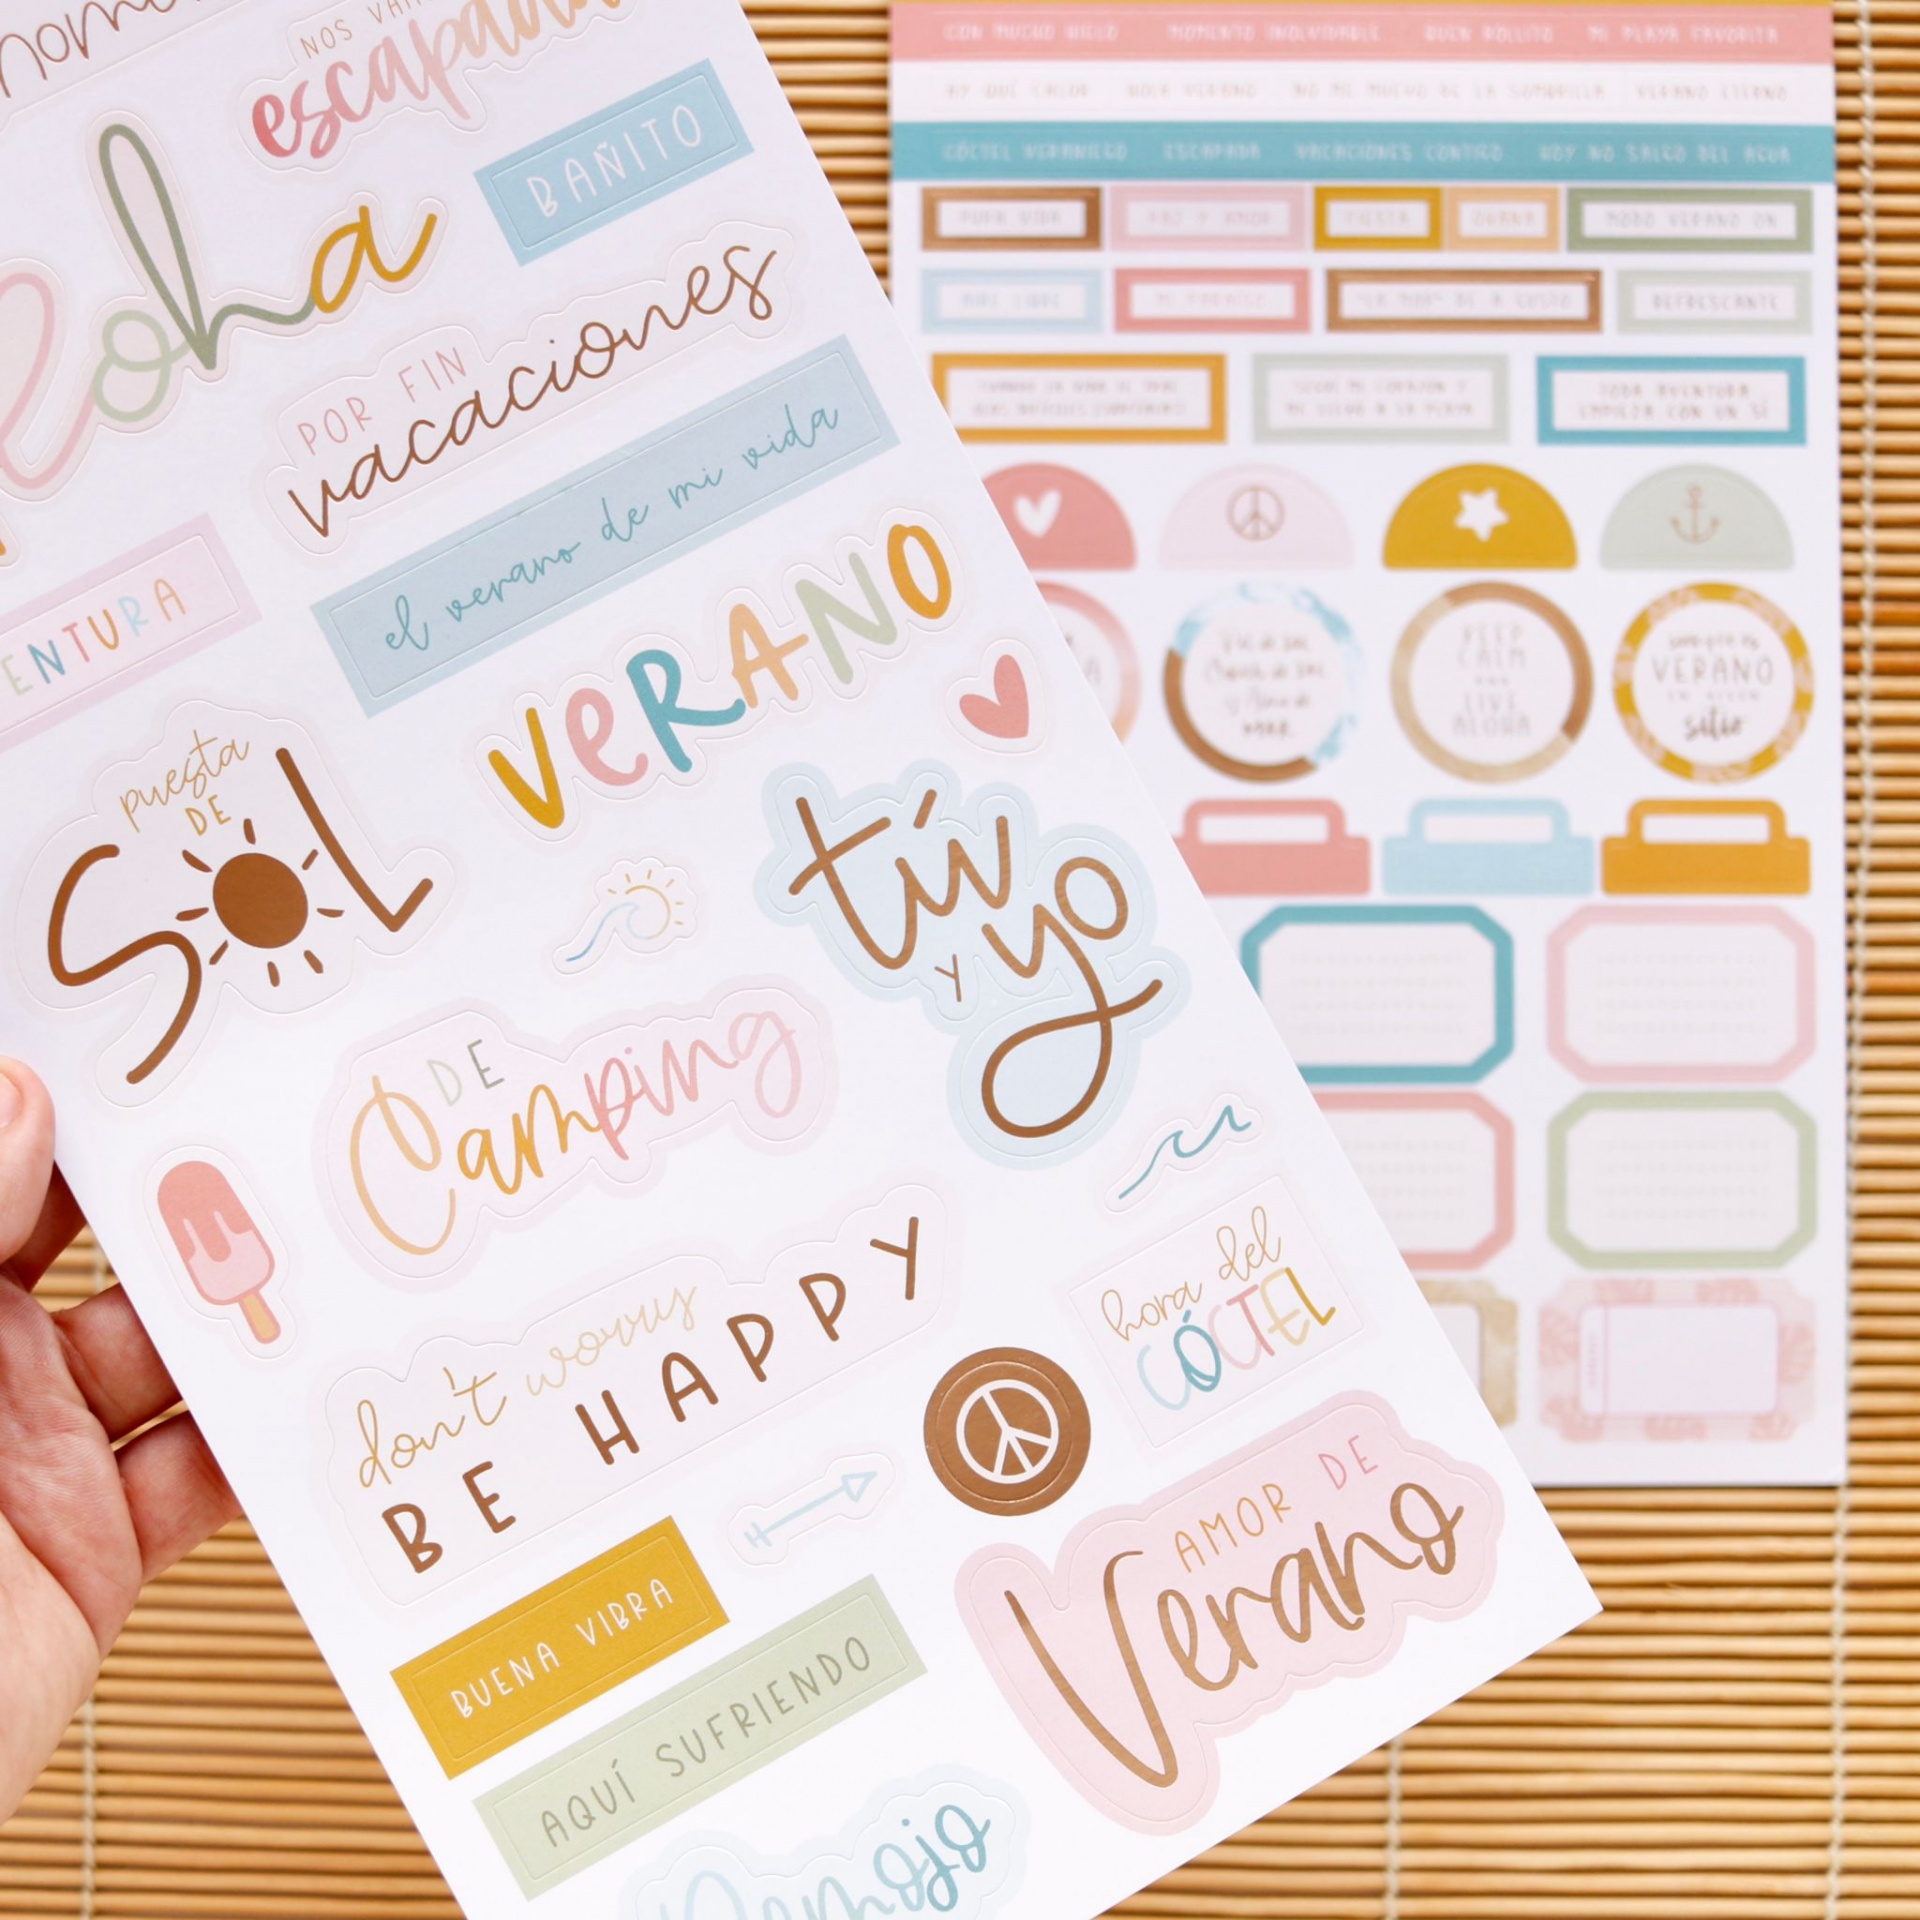 NOS
escapada
BAÑITO
POR FIN
vacaciones
el verano de mi vida
ENTURA
VERANO
puesta
DE
SOL
tú
Y yo
DE
Camping
hora del
CÓCTEL
don't worry
BE HAPPY
AMOR DE
Verano
BUENA VIBRA
AQUÍ SUFRIENDO
Remojo
CON MUCHO HIELO MOMENTO INOLVIDABLE BUEN ROLLITO MI PLAYA FAVORITA
AY QUÉ CALOR HOLA VERANO NO ME MUEVO DE LA SOMBRILLA VERANO ETERNO
CÓCTEL VERANIEGO ESCAPADA VACACIONES CONTIGO HOY NO SALGO DEL AGUA
PURA VIDA PAZ Y AMOR FIESTA OHANA MODO VERANO ON
AIRE LIBRE MI PARAÍSO "LA MAR" DE A GUSTO REFRESCANTE
TODA AVENTURA
EMPIEZA CON UN SÍ
KEEP
CALM
AND
LIVE
ALOHA
siempre es
VERANO
EN ALGÚN
sitio